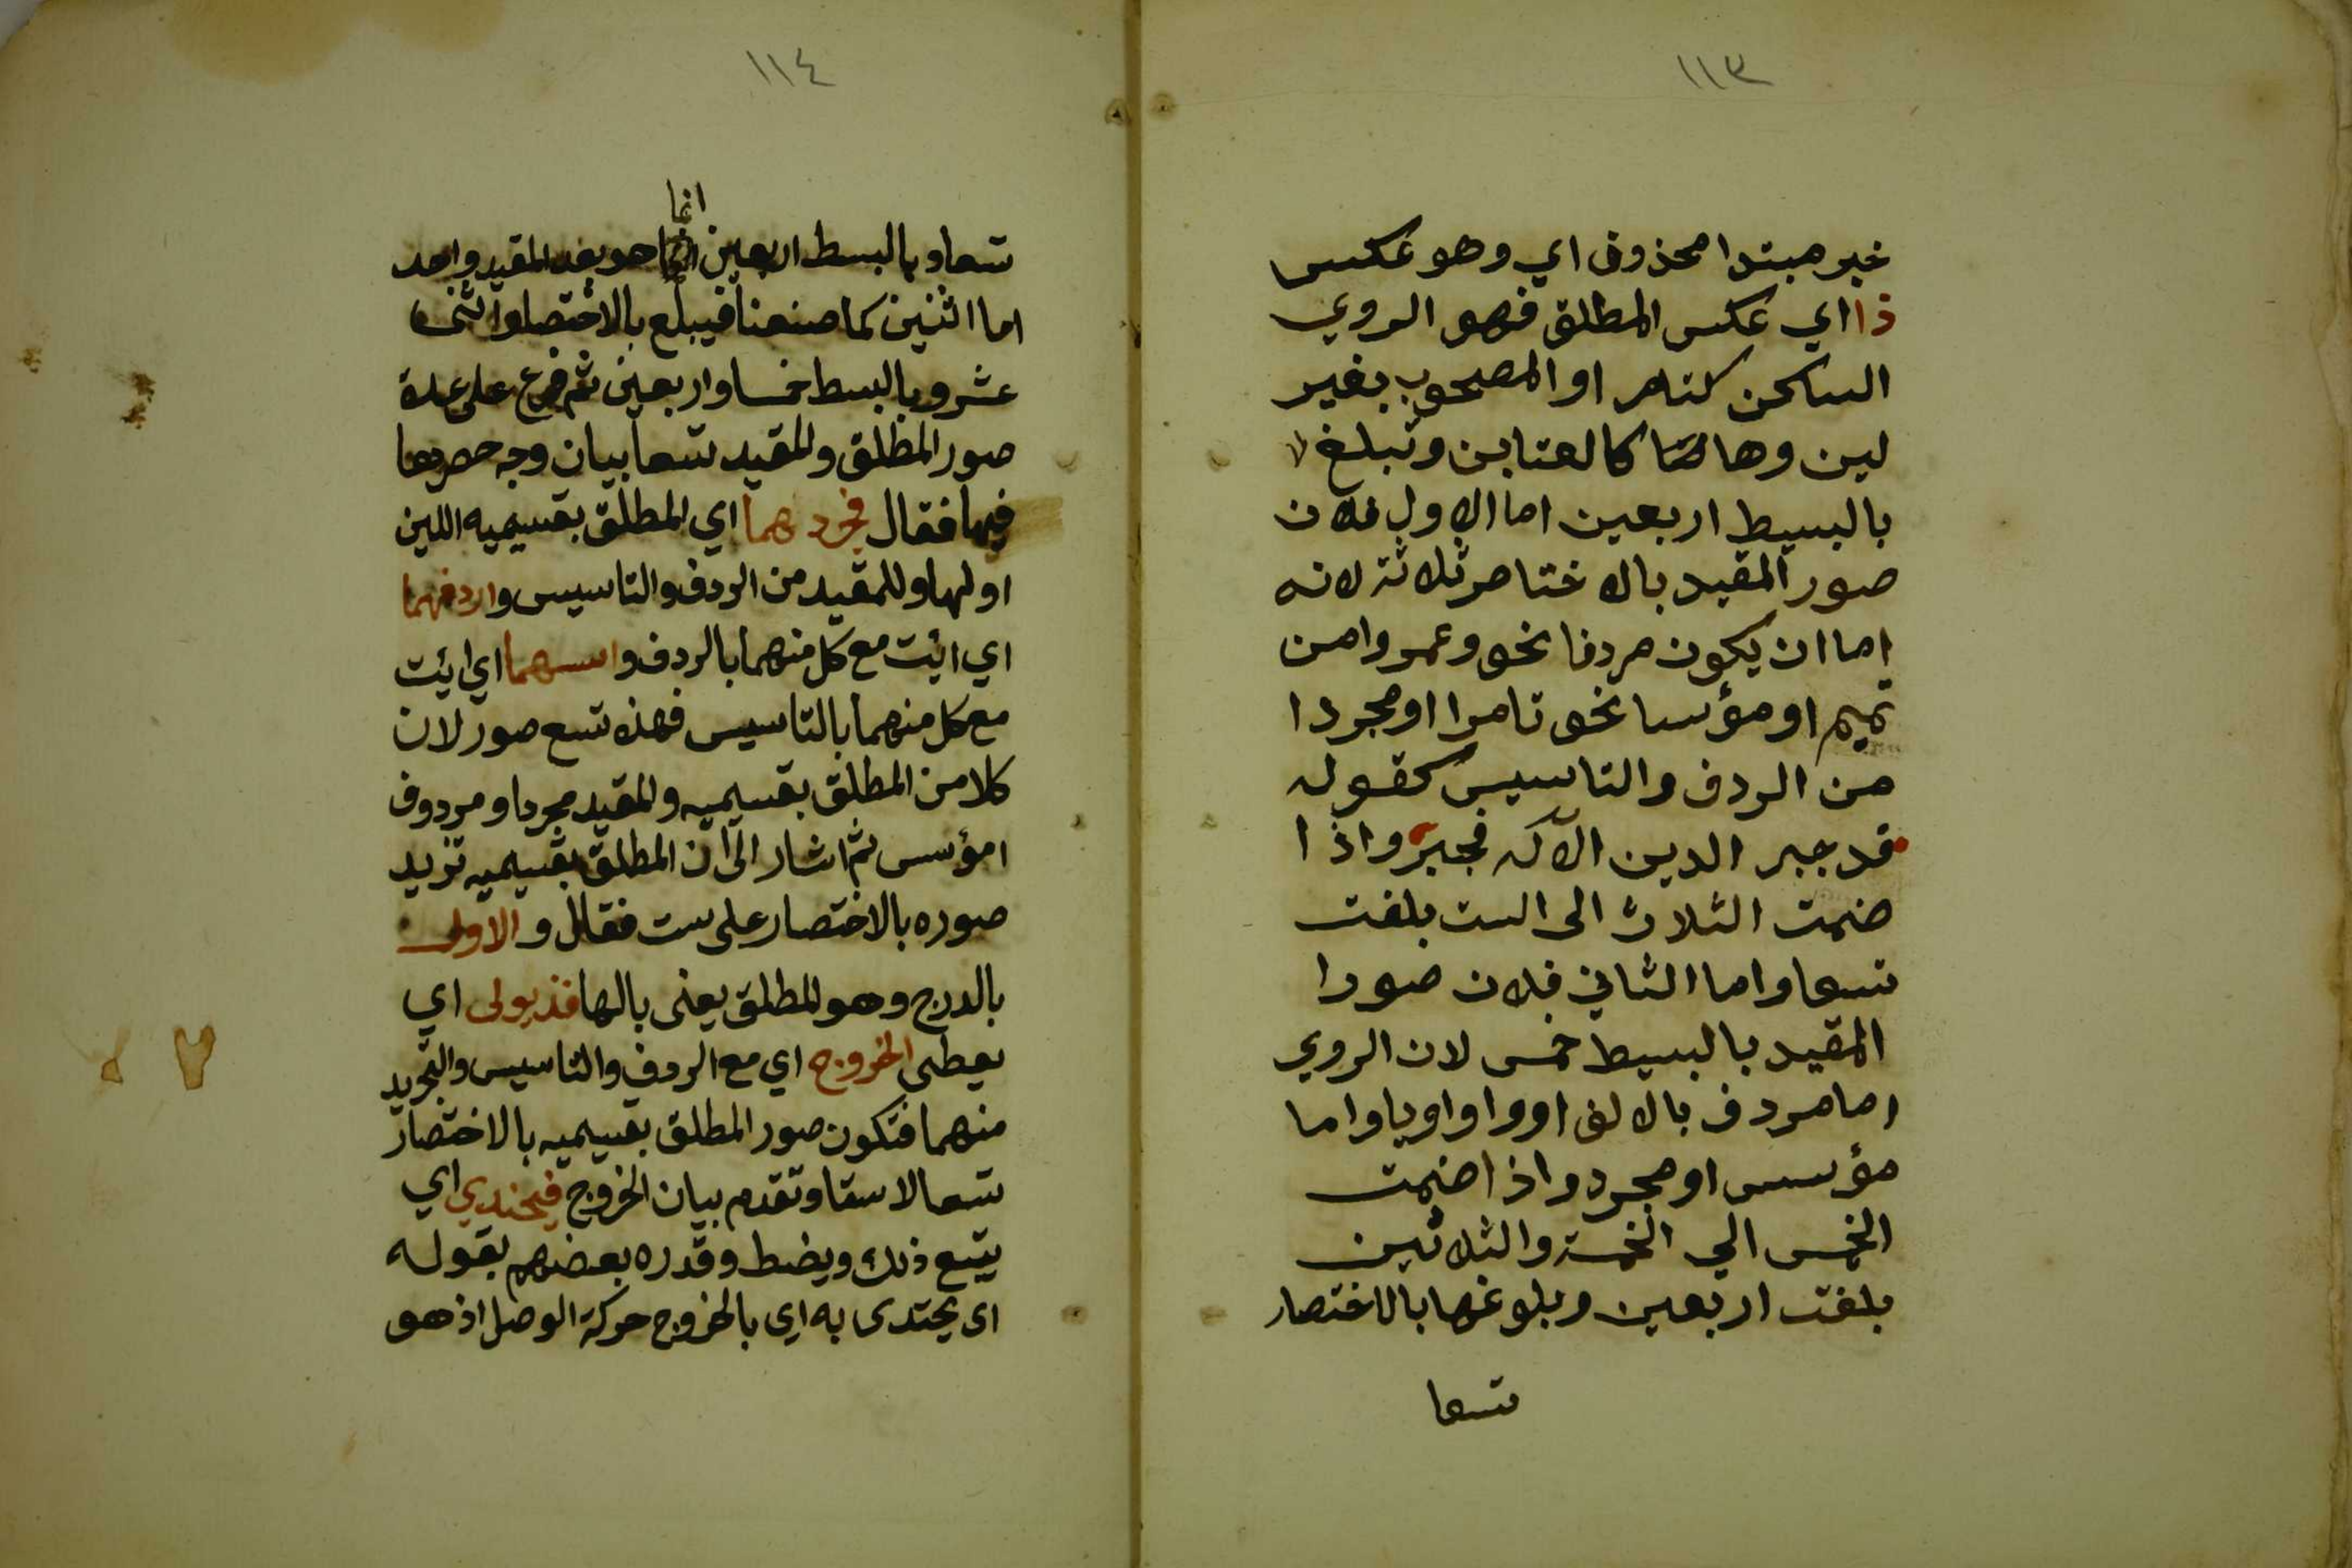 ١١٣
خبر مبتدا محذوف اي وهو عكس
ذا اي عكس المطلق فهو الروي
الساكن كتامر او المصحوب بغير
لين وها كالعتابن وتبلغ
بالبسيط اربعين اما الاول فلان
صور المقيد بالاختصار ثلاثة لانه
اما ان يكون مردفا نحو وعمرو من
تميم او مؤسسا نحو تامرا او مجردا
من الردف والتاسيس كقوله
قد جبر الدين الاله فجبر واذا
ضمت الثلاث الى الست بلغت
تسعا واما الثاني فلان صورا
المقيد بالبسيط خمس لان الروي
اما مردف بالالف او واو او يا واما
مؤسس او مجرد واذا ضمت
الخمس الي الخمسة والثلاثين
بلغت اربعين وبلوغها بالاختصار
تسعا
١١٤
انما
تسعا وبالبسط اربعين هو بعد المقيد واحد
اما اثنين كما صنعنا فيبلغ بالاختصار اثنى
عشر وبالبسط خمسا واربعين ثم فرع على عدة
صور المطلق والمقيد تسعا بيان وجه حصرها
فيها فقال فجردهما اي المطلق بقسيميه اللين
او لها وللمقيد من الردف والتاسيس واردفهما
اي ائت مع كل منهما بالردف واسسهما اي ائت
مع كل منهما بالتاسيس فهذه تسع صور لان
كلا من المطلق بقسيميه والمقيد مجرد او مردوف
امؤسس ثم اشار الى ان المطلق بقسيميه تزيد
صوره بالاختصار على ست فقال والاولى
بالدرج وهو المطلق يعنى بالها فذ يولى اي
يعطى الخروج اي مع الردف والتاسيس والتجريد
منهما فتكون صور المطلق بقسيميه بالاختصار
تسعا لا ستا وتقدم بيان الخروج فيحتذي اي
يتبع ذلك ويضبط وقدره بعضهم بقوله
اى يحتدى به اي بالخروج حركة الوصل اذ هو